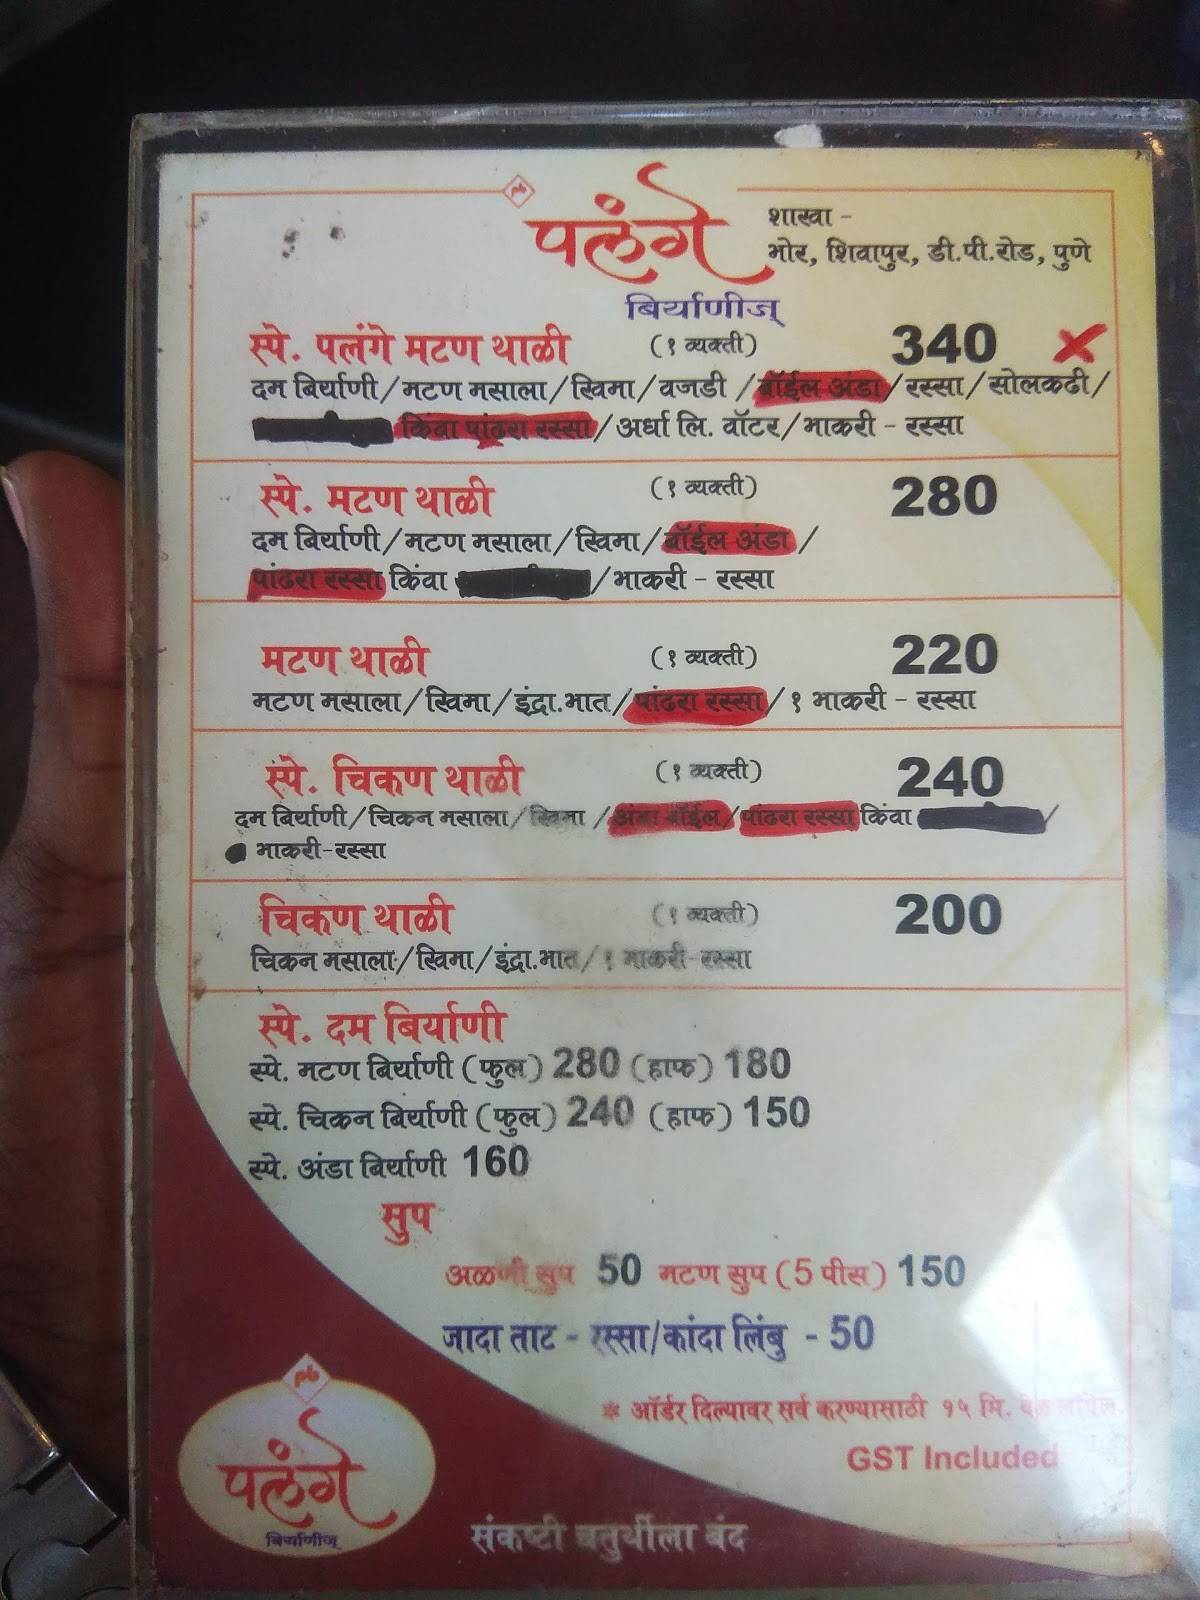 पलंगे
बिर्याणीज्
शाखा -
भोर, शिवापुर, डी.पी.रोड, पुणे
स्पे. पलंगे मटण थाळी (१ व्यक्ती) 340
दम बिर्याणी/मटण मसाला/खिमा/वजडी/बॉईल अंडा/रस्सा/सोलकढी/
किंवा पांढरा रस्सा/अर्धा लि. वॉटर/भाकरी - रस्सा
स्पे. मटण थाळी (१ व्यक्ती) 280
दम बिर्याणी/मटण मसाला/खिमा/बॉईल अंडा/
पांढरा रस्सा किंवा /भाकरी - रस्सा
मटण थाळी (१ व्यक्ती) 220
मटण मसाला/खिमा/इंद्रा.भात/पांढरा रस्सा/१ भाकरी - रस्सा
स्पे. चिकण थाळी (१ व्यक्ती) 240
दम बिर्याणी/चिकन मसाला/खिमा/अंडा बॉईल/पांढरा रस्सा किंवा /
भाकरी-रस्सा
चिकण थाळी (१ व्यक्ती) 200
चिकन मसाला/खिमा/इंद्रा.भात/१ भाकरी-रस्सा
स्पे. दम बिर्याणी
स्पे. मटण बिर्याणी (फुल) 280 (हाफ) 180
स्पे. चिकन बिर्याणी (फुल) 240 (हाफ) 150
स्पे. अंडा बिर्याणी 160
सुप
अळणी सुप 50 मटण सुप (5 पीस) 150
जादा ताट - रस्सा/कांदा लिंबु - 50
* ऑर्डर दिल्यावर सर्व करण्यासाठी १५ मि. वेळ लागेल.
GST Included
पलंगे
बिर्याणीज्
संकष्टी चतुर्थीला बंद